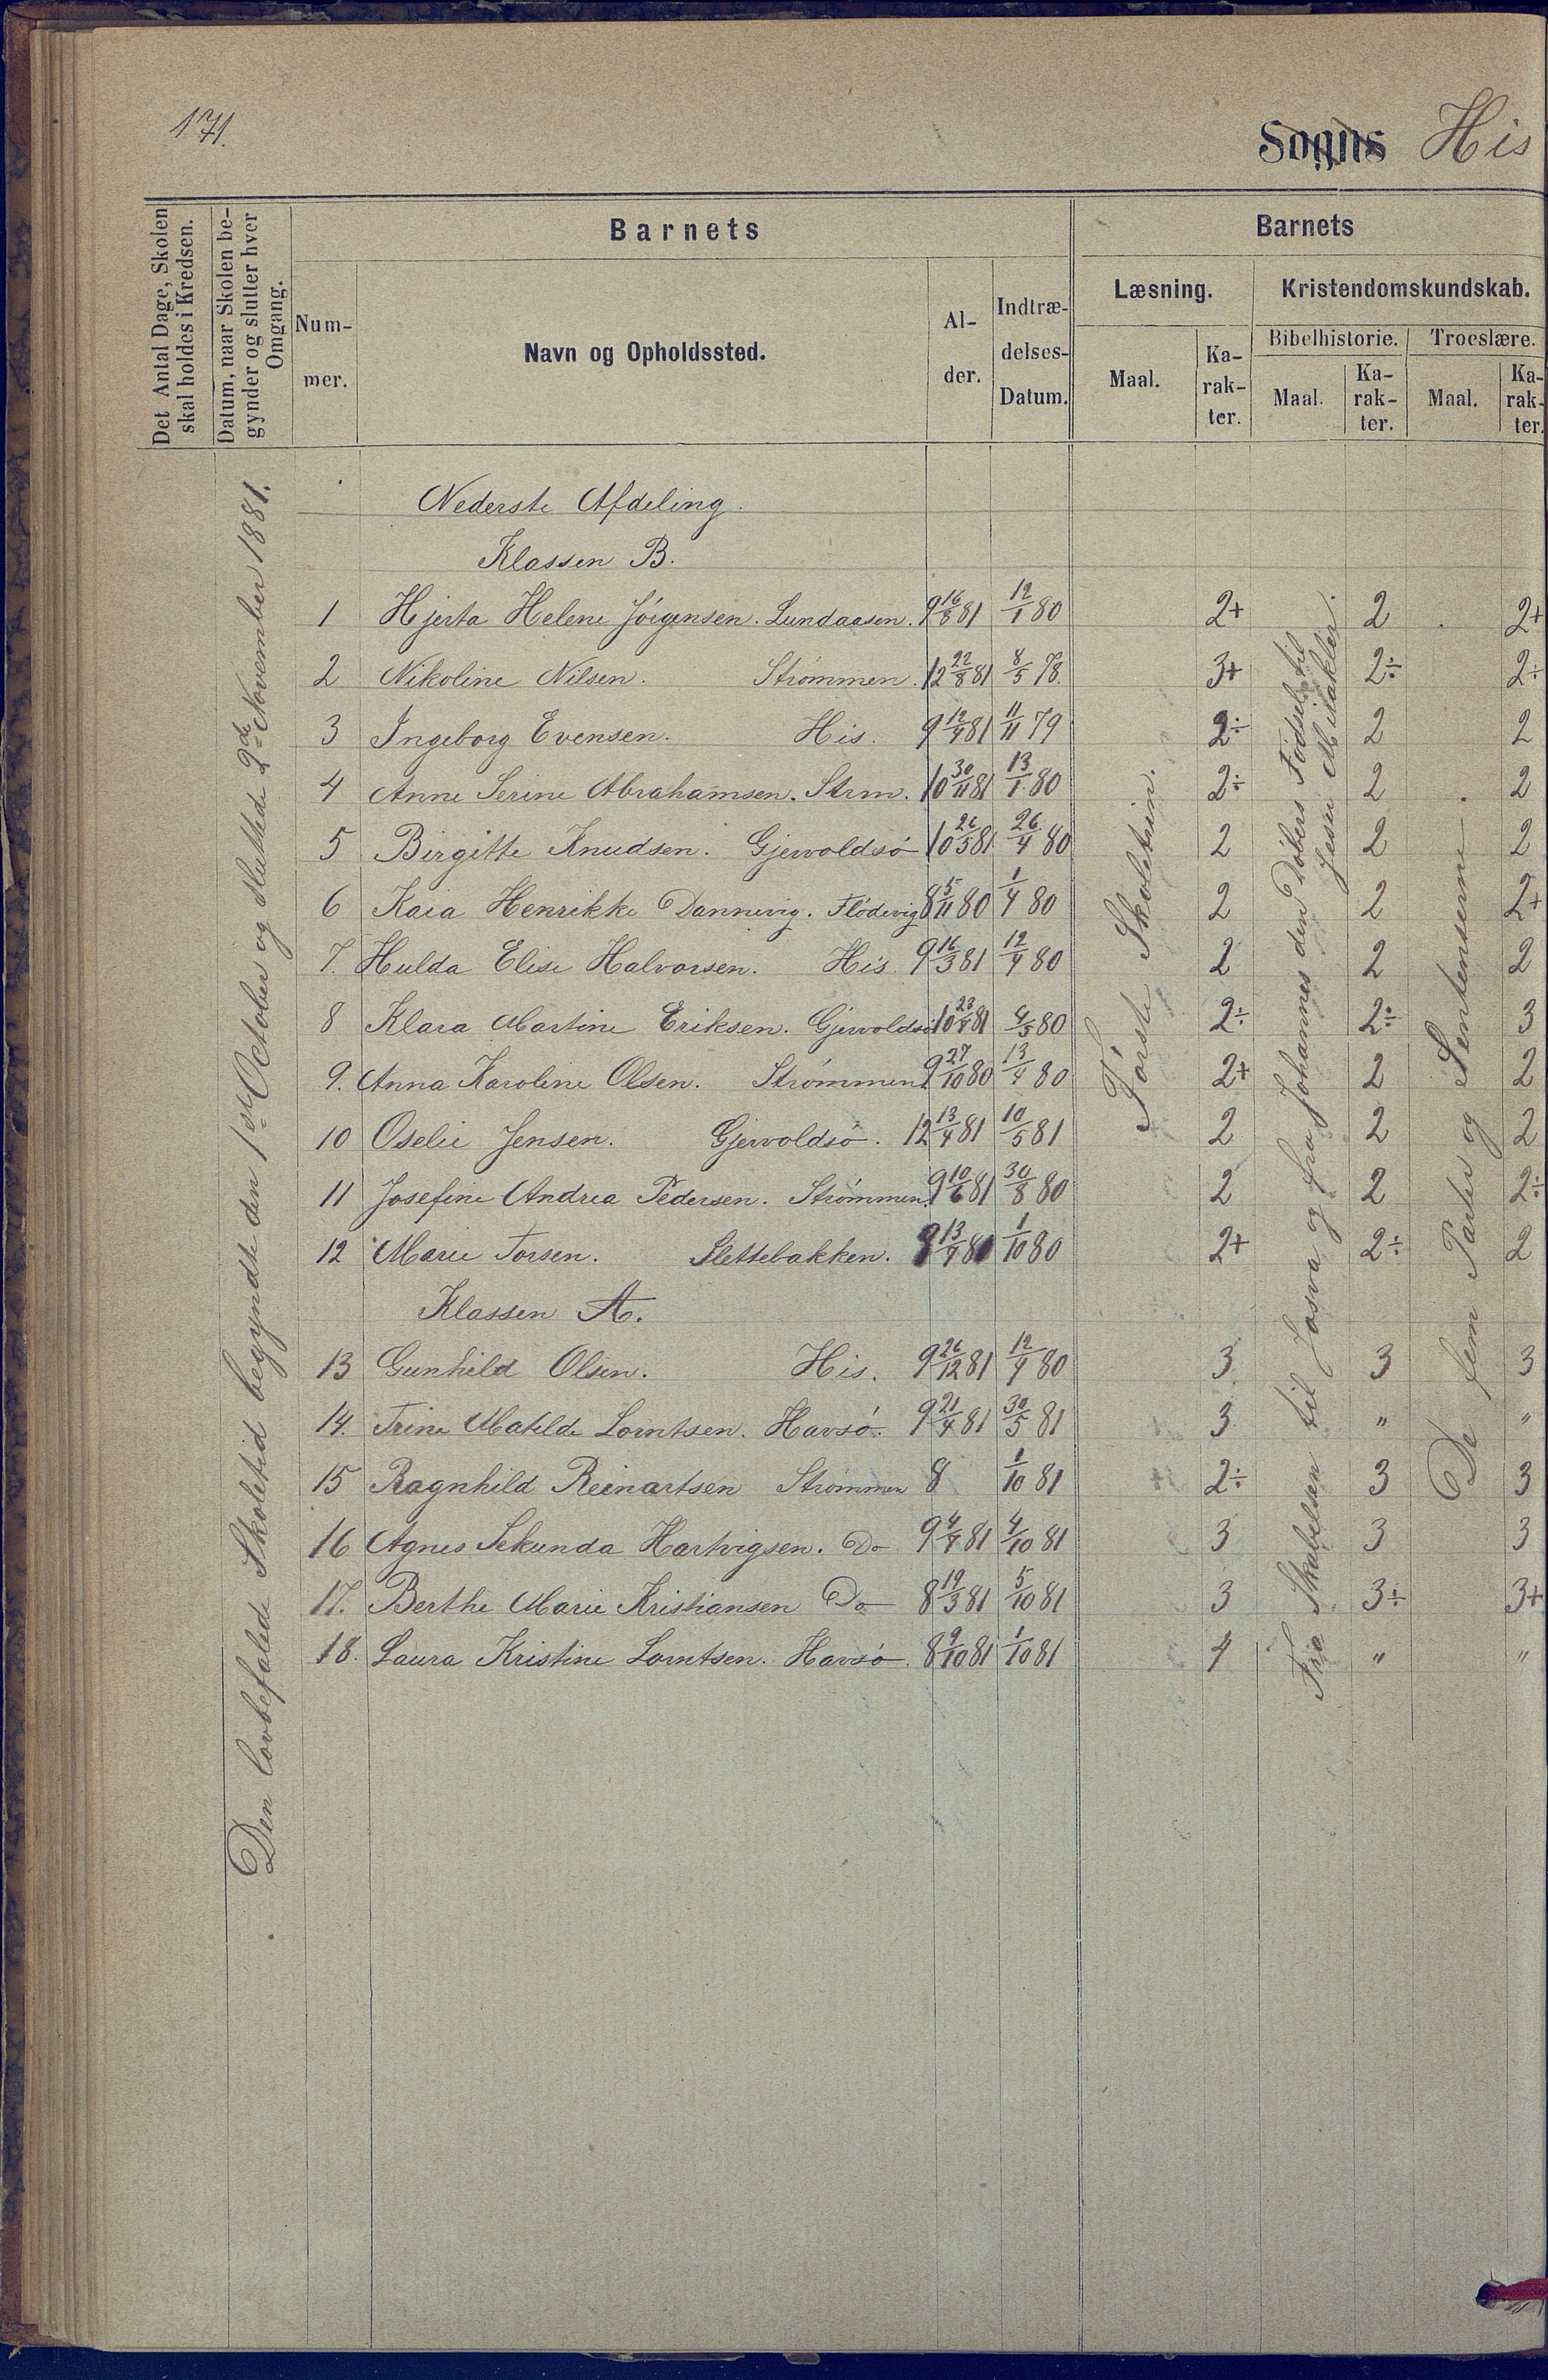 171.
Sogns His
Det Antal Dage, Skolen skal holdes i Kredsen.
Datum, naar Skolen begynder og slutter hver Omgang.
Barnets
Num-
mer.
Navn og Opholdssted.
Al-
der.
Indtræ-
delses-
Datum.
Barnets
Læsning.
Kristendomskundskab.
Maal.
Ka-
rak-
ter.
Bibelhistorie.
Troeslære.
Maal.
Ka-
rak-
ter.
Maal.
Ka-
rak-
ter.
Den lovbefalede Skoletid begyndte den 1ste October og sluttede 2den November 1881.
Nederste Afdeling.
Klassen B.
1 Hjerta Helene Jørgensen. Lundaasen. 9 16/8 81 12/1 80 2+ 2 2+
2 Nikoline Nilsen. Strømmen. 12 22/8 81 8/5 78. 3+ 2÷ 2÷
3 Ingeborg Evensen. His. 9 12/4 81 11/11 79 2÷ 2 2
4 Anne Serine Abrahamsen. Strm. 10 30/11 81 13/1 80 2÷ 2 2
5 Birgitte Knudsen. Gjervoldsø 10 26/5 81 26/4 80 2 2 2
6 Kaia Henrikke Dannevig. Flødevig 8 5/11 80 1/4 80 2 2 2+
7. Hulda Elise Halvorsen. His. 9 16/3 81 12/4 80 2 2 2
8 Klara Martine Eriksen. Gjervoldsø 10 23/4 81 4/5 80 2÷ 2÷ 3
9. Anna Karoline Olsen. Strømmen. 9 27/10 80 13/4 80 2+ 2 2
10 Oselie Jensen. Gjervoldsø. 12 13/4 81 10/5 81 2 2 2
11 Josefine Andrea Pedersen. Strømmen. 9 10/6 81 30/8 80 2 2 2÷
12 Marie Torsen. Slettebakken. 13/4 8 1/10 80 2+ 2÷ 2
Klassen A.
13 Gunhild Olsen. His. 9 26/12 81 12/4 80 3 3 3
14. Trine Matilde Lorntsen. Havsø. 9 21/4 81 30/5 81 3 " "
15 Ragnhild Reinartsen Strømmen 8 1/10 81 2÷ 3 3
16 Agnes Sekunda Hartvigsen. Do 9 4/4 81 4/10 81 3 3 3
17. Berthe Marie Kristiansen Do 8 19/3 81 5/10 81 3 3÷ 3+
18. Laura Kristine Lorntsen. Havsø. 8 9/10 81 1/10 81 4 " "
Første Skoletrin.
Fra Skabelsen til Josva og fra Johannes den Døbers Fødsel til
Jesu Mirakler.
De fem Parter og Sentenserne